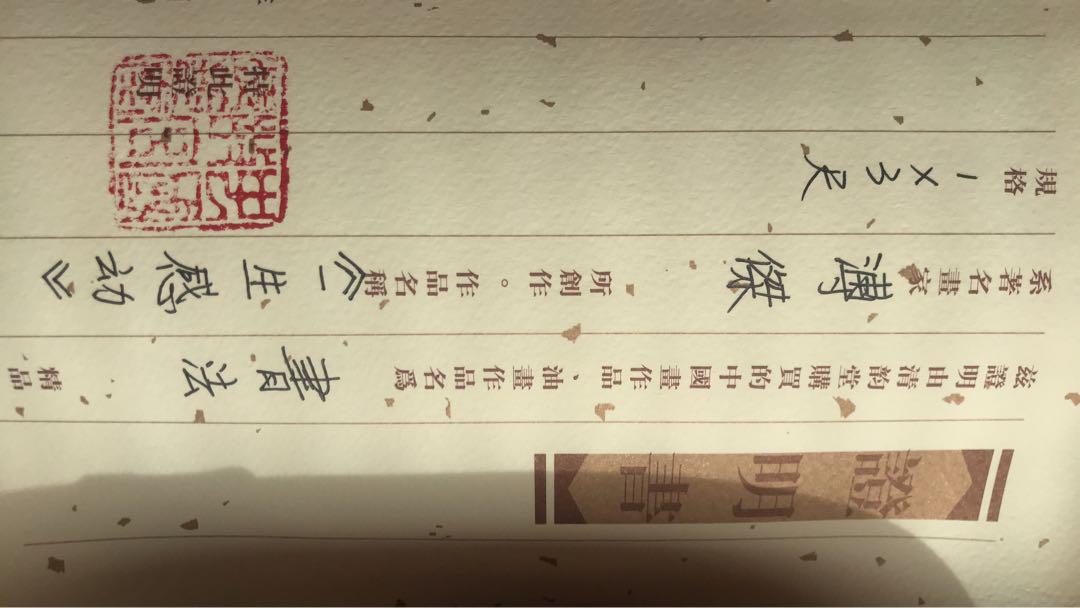 證明書
兹證明由清韵堂購買的中國畫作品、油畫作品名爲書法精品
系著名畫家溥傑所創作。作品名稱《一生感动》
規格1×3尺
特此證明